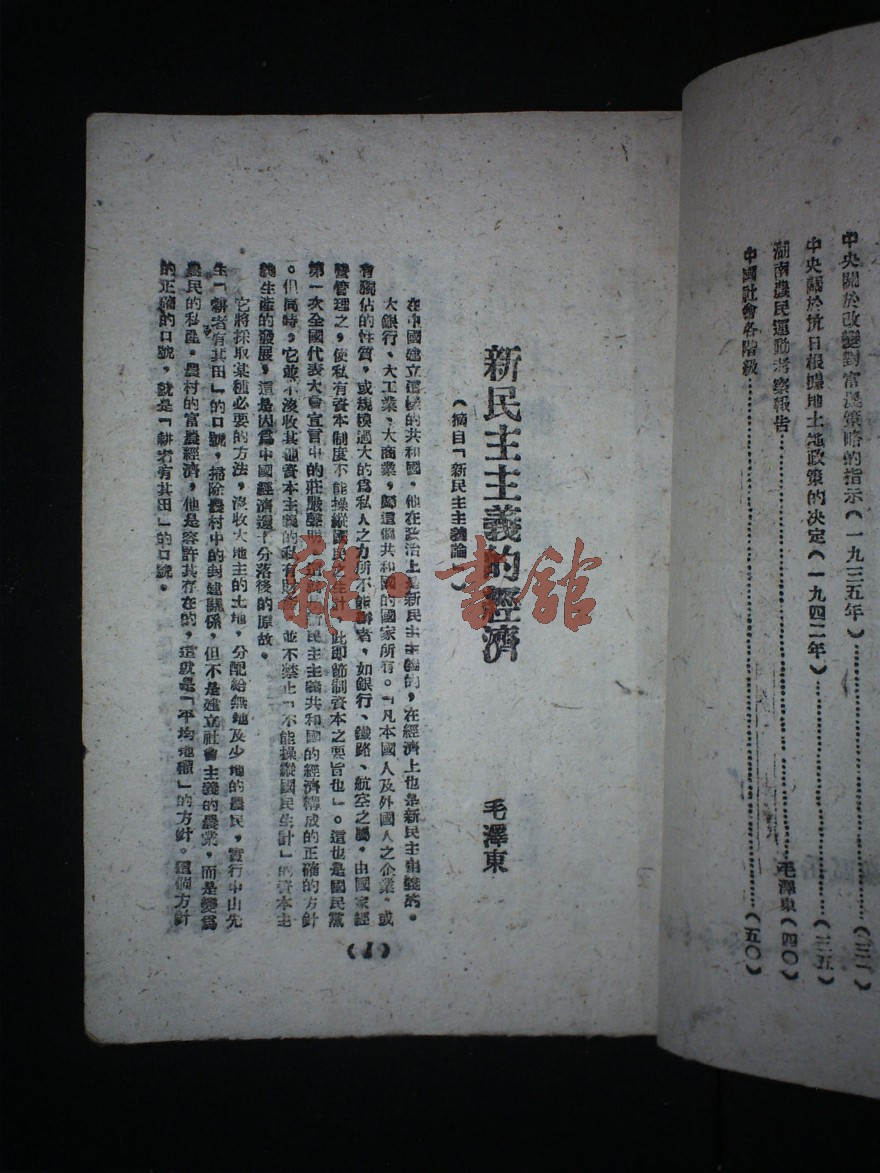 中央關於改變對富農策略的指示(一九三五年)………………(三一)
中央關於抗日根據地土地政策的決定(一九四二年)………………(三五)
湖南農民運動考察報告………………毛澤東(四〇)
中國社會各階級………………(五〇)
新民主主義的經濟
毛澤東
(摘自「新民主主義論」)
在中國建立這樣的共和國,他在政治上是新民主主義的,在經濟上也是新民主主義的。
大銀行、大工業、大商業,歸這個共和國的國家所有。「凡本國人及外國人之企業,或
有獨佔的性質,或規模過大的爲私人之力所不能辦者,如銀行、鐵路、航空之屬,由國家經
營管理之,使私有資本制度不能操縱國民之生計,此即節制資本之要旨也」。這也是國民黨
第一次全國代表大會宣言中的莊嚴聲明,這就是新民主主義共和國的經濟構成的正確的方針
。但同時,它並不沒收其他資本主義的私有財產,並不禁止「不能操縱國民生計」的資本主
義生產的發展,這是因爲中國經濟還十分落後的原故。
它將採取某種必要的方法,沒收大地主的土地,分配給無地及少地的農民,實行中山先
生「耕者有其田」的口號,掃除農村中的封建關係,但不是建立社會主義的農業,而是變爲
農民的私產。農村的富農經濟,他是容許其存在的,這就是「平均地權」的方針。這個方針
的正確的口號,就是「耕者有其田」的口號。
(1)
龍·書館